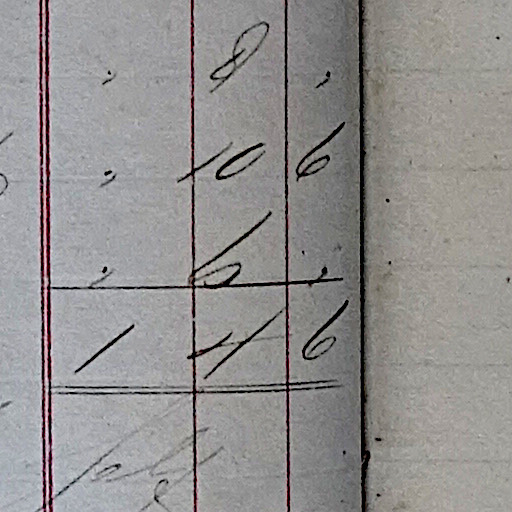 , 8 ,
, 10 6
, 6 ,
1 4 6